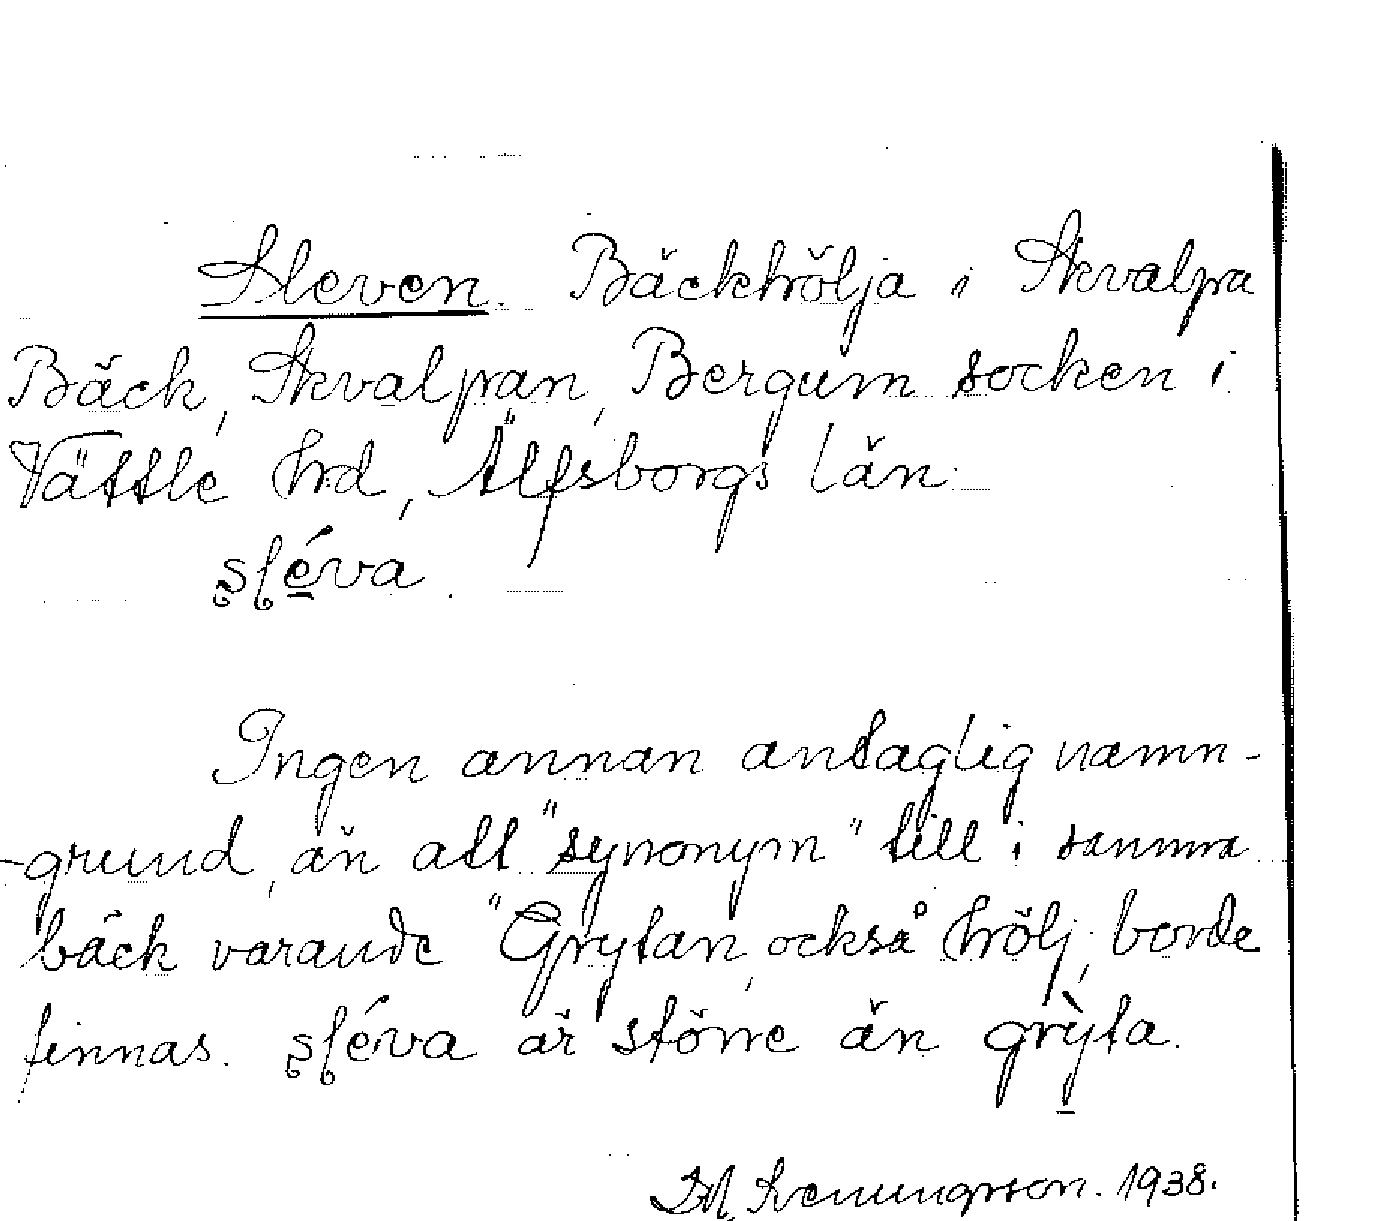 Sleven. Bäckhölja i Skvalpa
Bäck, Skvalpan, Bergum socken i
Vättle hrd, Älfsborgs län.
sléva.
Ingen annan antaglig namn-
-grund, än att "synonym" till i samma
bäck varande "Grytan, också hölj, borde
finnas. sléva är större än grỳta.
1938.